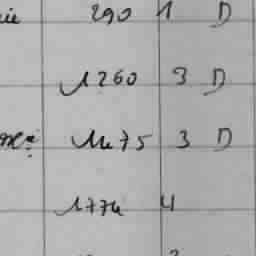 290 1 D
1260 3 D
1475 3 D
1774 4